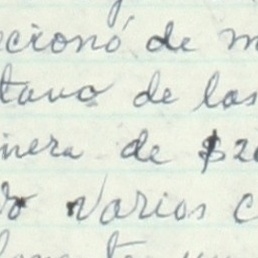 ecionó de m
tavo de las
nera de $20
varios c